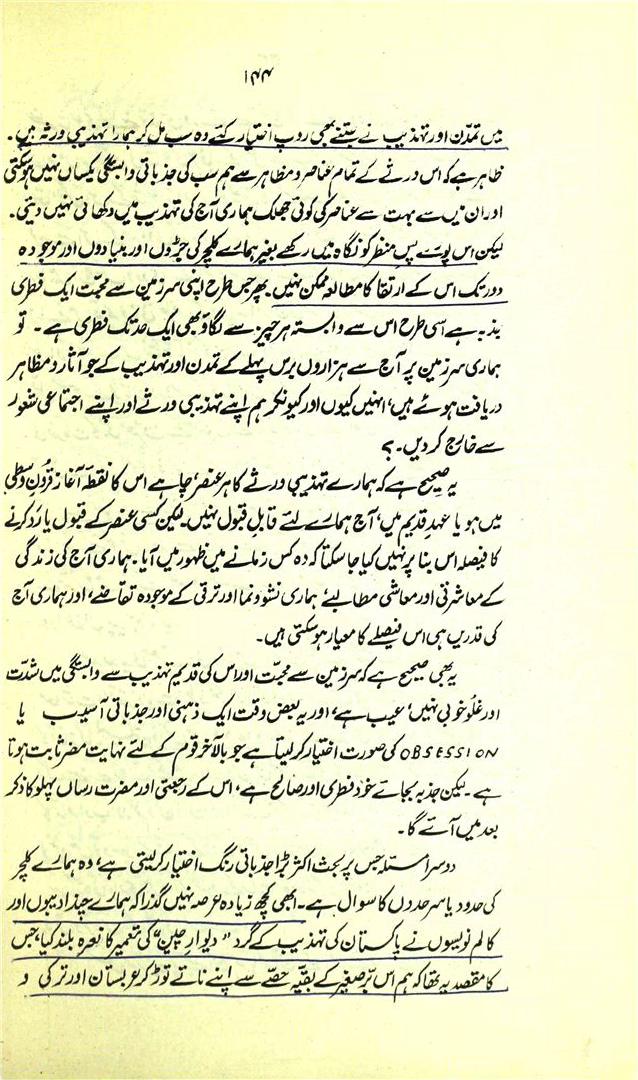 ۱۴۴
میں تمدّن اور تہذیب نے جتنے بھی روپ اختیار کئے وہ سب مل کر ہمارا تہذیبی ورثہ ہیں۔
ظاہر ہے کہ اس ورثے کے تمام عناصر و مظاہر سے ہم سب کی جذباتی وابستگی یکساں نہیں ہوسکتی
اور ان میں سے بہت سے عناصر کی کوئی جھلک ہماری آج کی تہذیب میں دکھائی نہیں دیتی۔
لیکن اس پورے پس منظر کو نگاہ میں رکھے بغیر ہمارے کلچر کی جڑوں اور بنیادوں اور موجودہ
دور تک اس کے ارتقا کا مطالعہ ممکن نہیں۔ پھر جس طرح اپنی سرزمین سے محبّت ایک فطری
جذبہ ہے اسی طرح اس سے وابستہ ہر چیز سے لگاؤ بھی ایک حد تک فطری ہے۔ تو
ہماری سرزمین پر آج سے ہزاروں برس پہلے کے تمدن اور تہذیب کے جو آثار و مظاہر
دریافت ہوئے ہیں، انہیں کیوں اور کیونکر ہم اپنے تہذیبی ورثے اور اپنے اجتماعی شعور
سے خارج کر دیں۔؟
یہ صحیح ہے کہ ہمارے تہذیبی ورثے کا ہر عنصر، چاہے اس کا نقطۂ آغاز قرونِ وسطیٰ
میں ہو یا عہدِ قدیم میں، آج ہمارے لئے قابلِ قبول نہیں۔ لیکن کسی عنصر کے قبول یا رد کرنے
کا فیصلہ اس بنا پر نہیں کیا جاسکتا کہ وہ کس زمانے میں ظہور میں آیا۔ ہماری آج کی زندگی
کے معاشرتی اور معاشی مطالبے، ہماری نشوونما اور ترقی کے موجودہ تقاضے، اور ہماری آج
کی قدریں ہی اس فیصلے کا معیار ہوسکتی ہیں۔
یہ بھی صحیح ہے کہ سرزمین سے محبّت اور اس کی قدیم تہذیب سے وابستگی میں شدّت
اور غلو خوبی نہیں، عیب ہے، اور یہ بعض وقت ایک ذہنی اور جذباتی آسیب یا
OBSESSION کی صورت اختیار کر لیتا ہے جو بالآخر قوم کے لئے نہایت مضر ثابت ہوتا
ہے۔ لیکن جذبہ بجائے خود فطری اور صالح ہے، اس کے رجعتی اور مضرت رساں پہلو کا ذکر
بعد میں آئے گا۔
دوسرا مسئلہ جس پر بحث اکثر بڑا جذباتی رنگ اختیار کر لیتی ہے، وہ ہمارے کلچر
کی حدود یا سرحدوں کا سوال ہے۔ ابھی کچھ زیادہ عرصہ نہیں گذرا کہ ہمارے چند ادیبوں اور
کالم نویسوں نے پاکستان کی تہذیب کے گرد ”دیوارِ چین“ کی تعمیر کا نعرہ بلند کیا، جس
کا مقصد یہ تھا کہ ہم اس برِّصغیر کے بقیّہ حصّے سے اپنے ناتے توڑ کر عربستان اور ترکی و